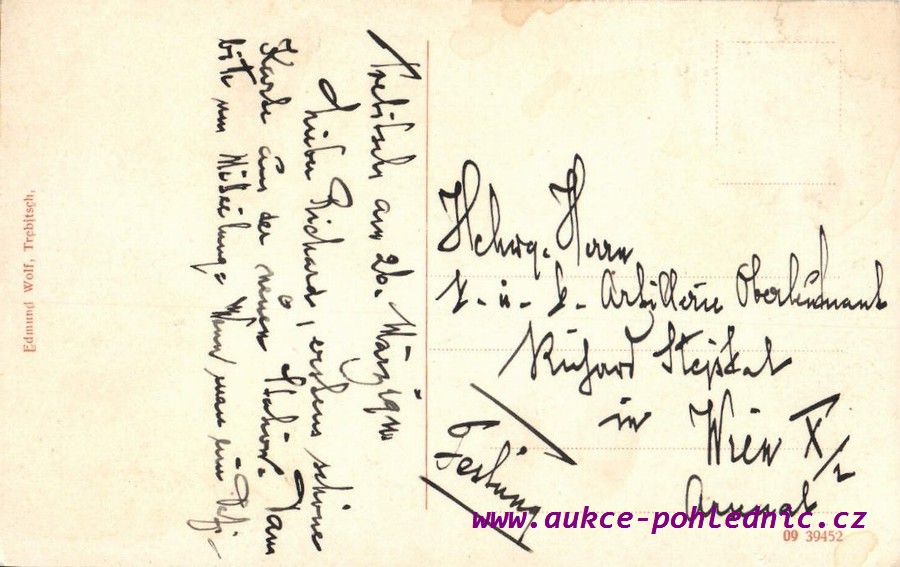 Trebitsch am 26. März 1910
Lieber Richard, erstens schöne
Karte aus der neuen Station. Dann
bitte um Mitteilung: Wenn man ein
Hchwg. Herrn
k. u. k. Artillerie Oberleutnant
Richard Stejskal
in Wien X/2
Arsenal
Edmund Wolf, Trebitsch.
09 39452
www.aukce-pohlednic.cz